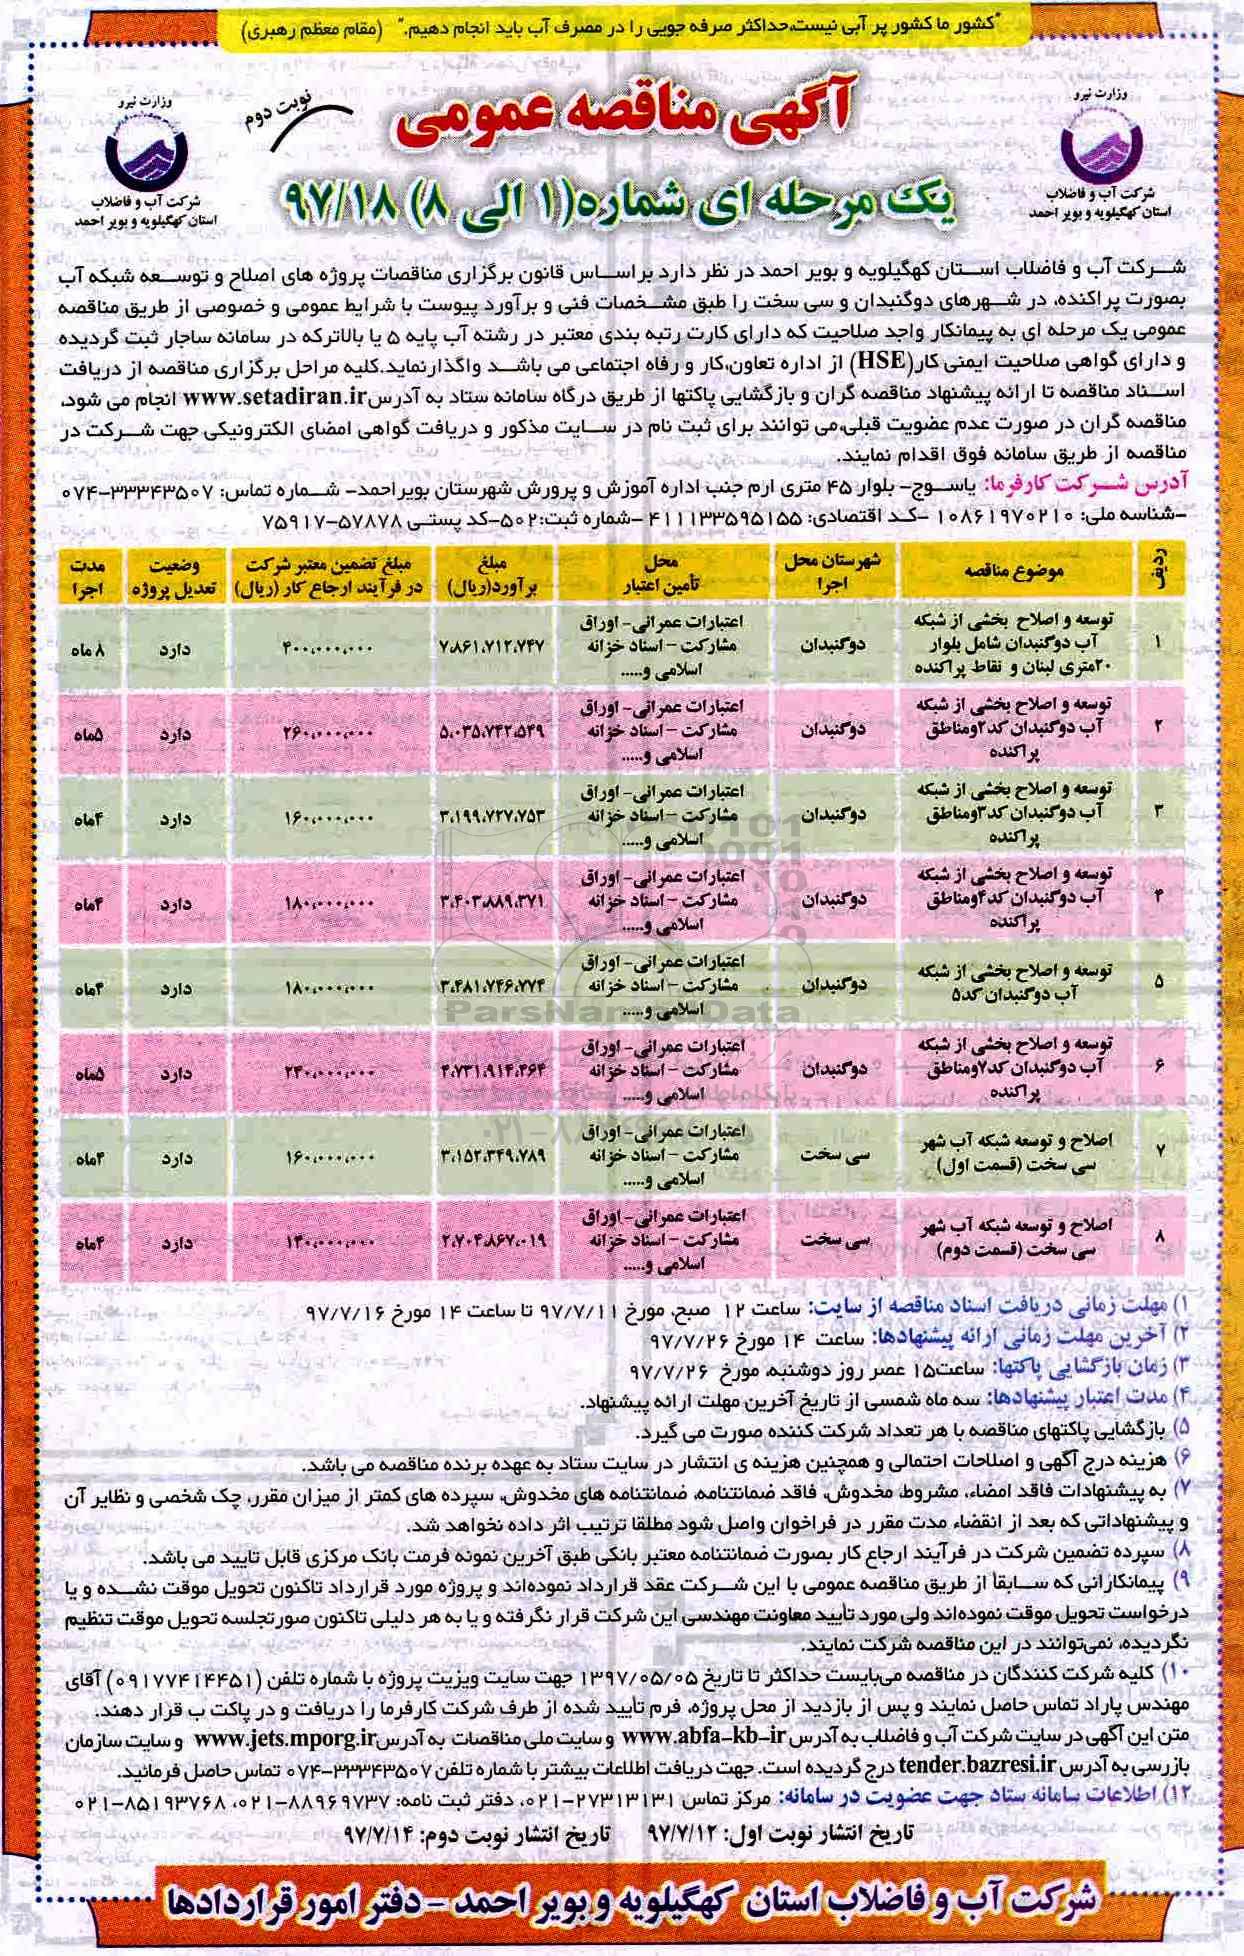 "کشور ما کشور پر آبی نیست،حداکثر صرفه جویی را در مصرف آب باید انجام دهیم." (مقام معظم رهبری)
وزارت نیرو
شرکت آب و فاضلاب
استان کهگیلویه و بویر احمد
آگهی مناقصه عمومی
نوبت دوم
وزارت نیرو
شرکت آب و فاضلاب
استان کهگیلویه و بویر احمد
یک مرحله ای شماره(۱ الی ۸) ۹۷/۱۸
شرکت آب و فاضلاب استان کهگیلویه و بویر احمد در نظر دارد براساس قانون برگزاری مناقصات پروژه های اصلاح و توسعه شبکه آب
بصورت پراکنده، در شهرهای دوگنبدان و سی سخت را طبق مشخصات فنی و برآورد پیوست با شرایط عمومی و خصوصی از طریق مناقصه
عمومی یک مرحله ای به پیمانکار واجد صلاحیت که دارای کارت رتبه بندی معتبر در رشته آب پایه ۵ یا بالاترکه در سامانه ساجار ثبت گردیده
و دارای گواهی صلاحیت ایمنی کار(HSE) از اداره تعاون،کار و رفاه اجتماعی می باشد واگذارنماید.کلیه مراحل برگزاری مناقصه از دریافت
اسناد مناقصه تا ارائه پیشنهاد مناقصه گران و بازگشایی پاکتها از طریق درگاه سامانه ستاد به آدرس www.setadiran.ir انجام می شود،
مناقصه گران در صورت عدم عضویت قبلی،می توانند برای ثبت نام در سایت مذکور و دریافت گواهی امضای الکترونیکی جهت شرکت در
مناقصه از طریق سامانه فوق اقدام نمایند.
آدرس شرکت کارفرما: یاسوج- بلوار ۴۵ متری ارم جنب اداره آموزش و پرورش شهرستان بویراحمد- شماره تماس: ۳۳۳۴۳۵۰۷-۰۷۴
-شناسه ملی: ۱۰۸۶۱۹۷۰۲۱۰ -کد اقتصادی: ۴۱۱۱۳۳۵۹۵۱۵۵ -شماره ثبت:۵۰۲-کد پستی ۵۷۸۷۸-۷۵۹۱۷
ردیف | موضوع مناقصه | شهرستان محل اجرا | محل تأمین اعتبار | مبلغ برآورد(ریال) | مبلغ تضمین معتبر شرکت در فرآیند ارجاع کار (ریال) | وضعیت تعدیل پروژه | مدت اجرا
۱ | توسعه و اصلاح بخشی از شبکه آب دوگنبدان شامل بلوار ۲۰متری لبنان و نقاط پراکنده | دوگنبدان | اعتبارات عمرانی- اوراق مشارکت - اسناد خزانه اسلامی و..... | ۷،۸۶۱،۷۱۲،۷۴۷ | ۴۰۰،۰۰۰،۰۰۰ | دارد | ۸ ماه
۲ | توسعه و اصلاح بخشی از شبکه آب دوگنبدان کد۲ومناطق پراکنده | دوگنبدان | اعتبارات عمرانی- اوراق مشارکت - اسناد خزانه اسلامی و..... | ۵،۰۳۵،۷۴۲،۵۴۹ | ۲۶۰،۰۰۰،۰۰۰ | دارد | ۵ماه
۳ | توسعه و اصلاح بخشی از شبکه آب دوگنبدان کد۳ومناطق پراکنده | دوگنبدان | اعتبارات عمرانی- اوراق مشارکت - اسناد خزانه اسلامی و..... | ۳،۱۹۹،۷۲۷،۷۵۳ | ۱۶۰،۰۰۰،۰۰۰ | دارد | ۴ماه
۴ | توسعه و اصلاح بخشی از شبکه آب دوگنبدان کد۴ومناطق پراکنده | دوگنبدان | اعتبارات عمرانی- اوراق مشارکت - اسناد خزانه اسلامی و..... | ۳،۴۰۳،۸۸۹،۳۷۱ | ۱۸۰،۰۰۰،۰۰۰ | دارد | ۴ماه
۵ | توسعه و اصلاح بخشی از شبکه آب دوگنبدان کد۵ | دوگنبدان | اعتبارات عمرانی- اوراق مشارکت - اسناد خزانه اسلامی و..... | ۳،۴۸۱،۷۴۶،۷۷۴ | ۱۸۰،۰۰۰،۰۰۰ | دارد | ۴ماه
۶ | توسعه و اصلاح بخشی از شبکه آب دوگنبدان کد۷ومناطق پراکنده | دوگنبدان | اعتبارات عمرانی- اوراق مشارکت - اسناد خزانه اسلامی و..... | ۴،۷۳۱،۹۱۴،۴۶۴ | ۲۴۰،۰۰۰،۰۰۰ | دارد | ۵ماه
۷ | اصلاح و توسعه شبکه آب شهر سی سخت (قسمت اول) | سی سخت | اعتبارات عمرانی- اوراق مشارکت - اسناد خزانه اسلامی و..... | ۳،۱۵۲،۳۴۹،۷۸۹ | ۱۶۰،۰۰۰،۰۰۰ | دارد | ۴ماه
۸ | اصلاح و توسعه شبکه آب شهر سی سخت (قسمت دوم) | سی سخت | اعتبارات عمرانی- اوراق مشارکت - اسناد خزانه اسلامی و..... | ۲،۷۰۴،۸۶۷،۰۱۹ | ۱۴۰،۰۰۰،۰۰۰ | دارد | ۴ماه
ParsNamad Data
۱) مهلت زمانی دریافت اسناد مناقصه از سایت: ساعت ۱۲ صبح، مورخ ۹۷/۷/۱۱ تا ساعت ۱۴ مورخ ۹۷/۷/۱۶
۲) آخرین مهلت زمانی ارائه پیشنهادها: ساعت ۱۴ مورخ ۹۷/۷/۲۶
۳) زمان بازگشایی پاکتها: ساعت۱۵ عصر روز دوشنبه، مورخ ۹۷/۷/۲۶
۴) مدت اعتبار پیشنهادها: سه ماه شمسی از تاریخ آخرین مهلت ارائه پیشنهاد.
۵) بازگشایی پاکتهای مناقصه با هر تعداد شرکت کننده صورت می گیرد.
۶) هزینه درج آگهی و اصلاحات احتمالی و همچنین هزینه ی انتشار در سایت ستاد به عهده برنده مناقصه می باشد.
۷) به پیشنهادات فاقد امضاء، مشروط، مخدوش، فاقد ضمانتنامه، ضمانتنامه های مخدوش، سپرده های کمتر از میزان مقرر، چک شخصی و نظایر آن
و پیشنهاداتی که بعد از انقضاء مدت مقرر در فراخوان واصل شود مطلقا ترتیب اثر داده نخواهد شد.
۸) سپرده تضمین شرکت در فرآیند ارجاع کار بصورت ضمانتنامه معتبر بانکی طبق آخرین نمونه فرمت بانک مرکزی قابل تایید می باشد.
۹) پیمانکارانی که سابقاً از طریق مناقصه عمومی با این شرکت عقد قرارداد نموده‌اند و پروژه مورد قرارداد تاکنون تحویل موقت نشده و یا
درخواست تحویل موقت نموده‌اند ولی مورد تأیید معاونت مهندسی این شرکت قرار نگرفته و یا به هر دلیلی تاکنون صورتجلسه تحویل موقت تنظیم
نگردیده، نمی‌توانند در این مناقصه شرکت نمایند.
۱۰) کلیه شرکت کنندگان در مناقصه می‌بایست حداکثر تا تاریخ ۱۳۹۷/۰۵/۰۵ جهت سایت ویزیت پروژه با شماره تلفن (۰۹۱۷۷۴۱۴۴۵۱) آقای
مهندس پاراد تماس حاصل نمایند و پس از بازدید از محل پروژه، فرم تأیید شده از طرف شرکت کارفرما را دریافت و در پاکت ب قرار دهند.
متن این آگهی در سایت شرکت آب و فاضلاب به آدرس www.abfa-kb-ir و سایت ملی مناقصات به آدرس www.jets.mporg.ir و سایت سازمان
بازرسی به آدرس tender.bazresi.ir درج گردیده است. جهت دریافت اطلاعات بیشتر با شماره تلفن ۳۳۳۴۳۵۰۷-۰۷۴ تماس حاصل فرمائید.
۱۲) اطلاعات سامانه ستاد جهت عضویت در سامانه: مرکز تماس ۲۷۳۱۳۱۳۱-۰۲۱، دفتر ثبت نامه: ۸۸۹۶۹۷۳۷-۰۲۱، ۸۵۱۹۳۷۶۸-۰۲۱
تاریخ انتشار نوبت اول: ۹۷/۷/۱۲ تاریخ انتشار نوبت دوم: ۹۷/۷/۱۴
شرکت آب و فاضلاب استان کهگیلویه و بویر احمد -دفتر امور قراردادها